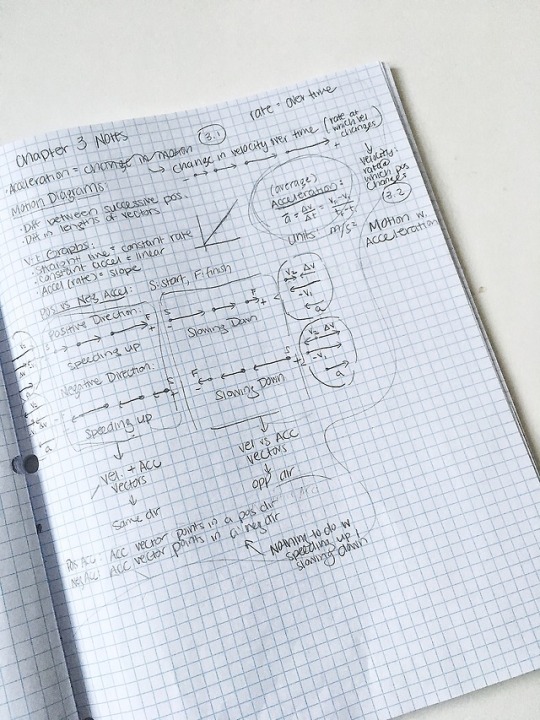 rate = over time
Chapter 3 Notes
3.1
Acceleration = change in motion
change in velocity over time (rate at which vel changes)
velocity: rate @ which pos changes
3.2
Motion Diagrams
· Diff between successive pos.
· Diff in lengths of vectors
V-t Graphs:
· Straight line = constant rate
· Constant accel = linear
· Accel (rate) = slope
(average)
Acceleration:
a = Δv/Δt
units: m/s²
Motion w. Acceleration
Pos vs Neg. Accel: S: start, F: finish
Positive Direction:
S F
speeding up
S F
Slowing Down
Negative Direction:
F S
speeding up
F S
Slowing Down
Vf Δv
-Vi
a
Vf Δv
-Vi
a
Vel. + Acc Vectors
Same dir
Vel vs Acc Vectors
opp dir
Pos Acc: Acc vector points in a pos dir
Neg Acc: Acc vector points in a neg dir
Nothing to do w speeding up, slowing down